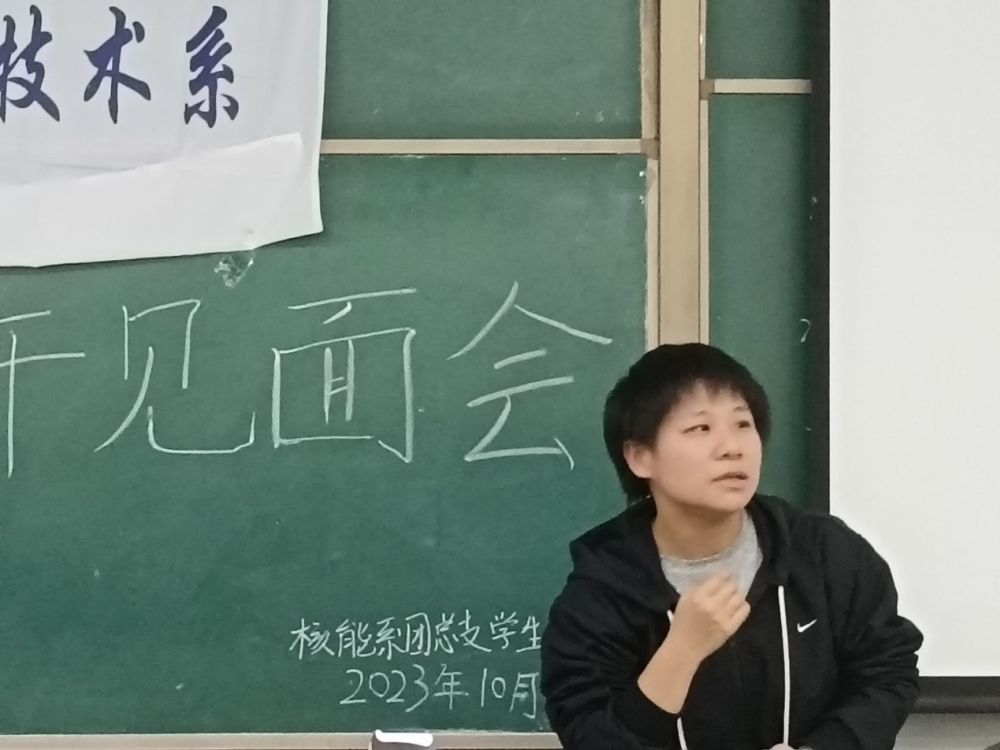 技术系
见面会
核能系团总支学生
2023年10月